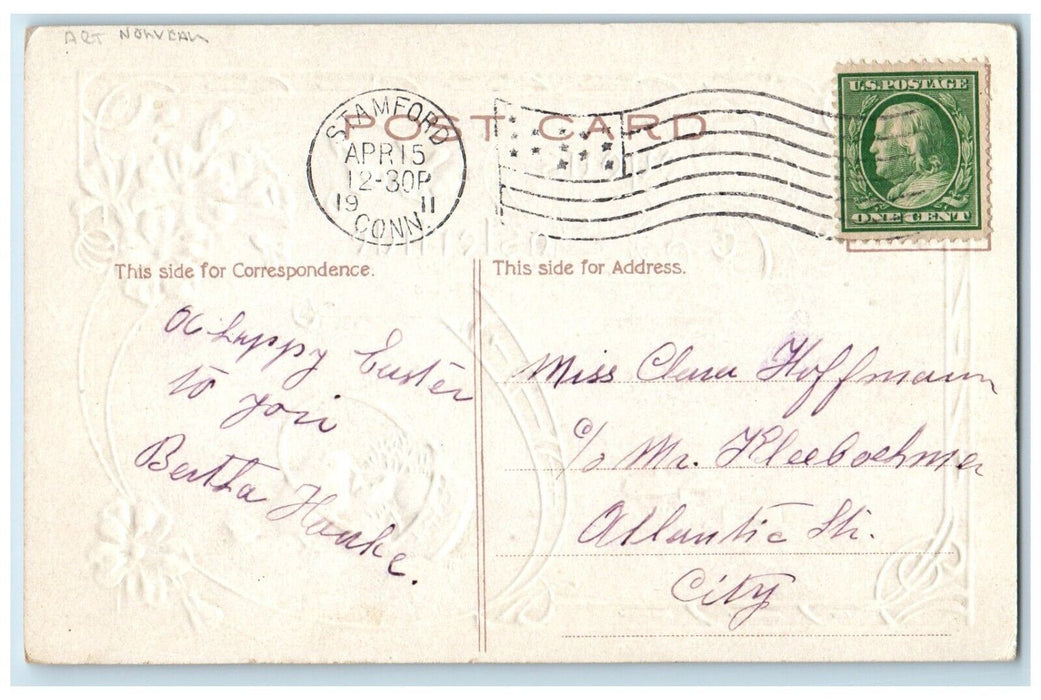 ART NOUVEAU
POST CARD
STAMFORD
APR 15
12-30P
19 11
CONN.
U.S. POSTAGE
ONE CENT
This side for Correspondence.
This side for Address.
A happy Easter
to you
Bertha Hanke.
Miss Clara Hoffmann
c/o Mr. Kleeboehmer
Atlantic St.
City